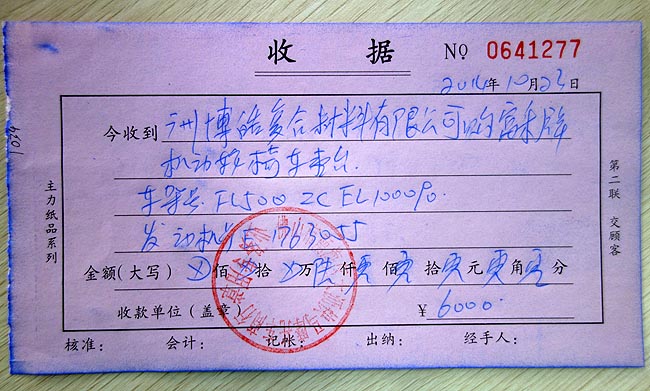 收 据 No 0641277
2014年10月23日
今收到 州博皓复合材料有限公司购富禾牌
机动轮椅车壹台.
车架号: FL500ZC EL100090.
发动机号 1763055
金额(大写) 佰 拾 万陆仟零佰零拾零元零角零分
收款单位(盖章) ¥ 6000.
核准: 会计: 记帐: 出纳: 经手人:
主力纸品系列
第二联 交顾客